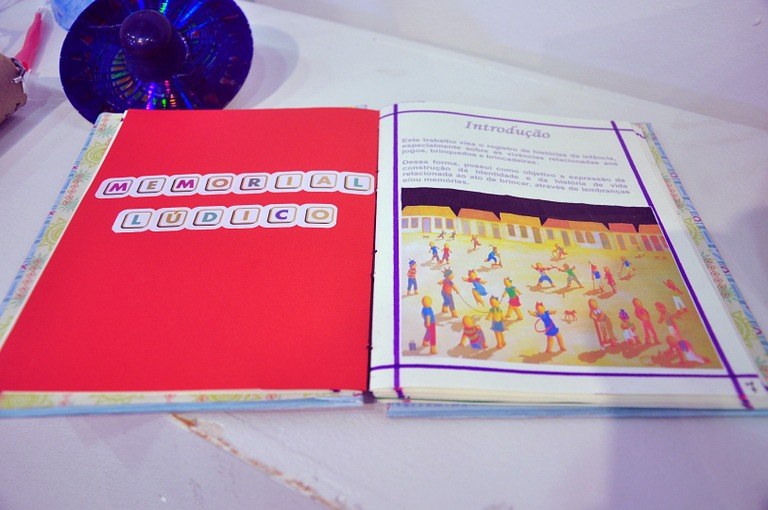 MEMORIAL
LÚDICO
Introdução
Este trabalho visa o registro de histórias da infância,
especialmente sobre as vivências relacionadas aos
jogos, brinquedos e brincadeiras.
Dessa forma, possui como objetivo a expressão de
construção da identidade e da história de vida
relacionada ao ato de brincar, através de lembranças
e/ou memórias.